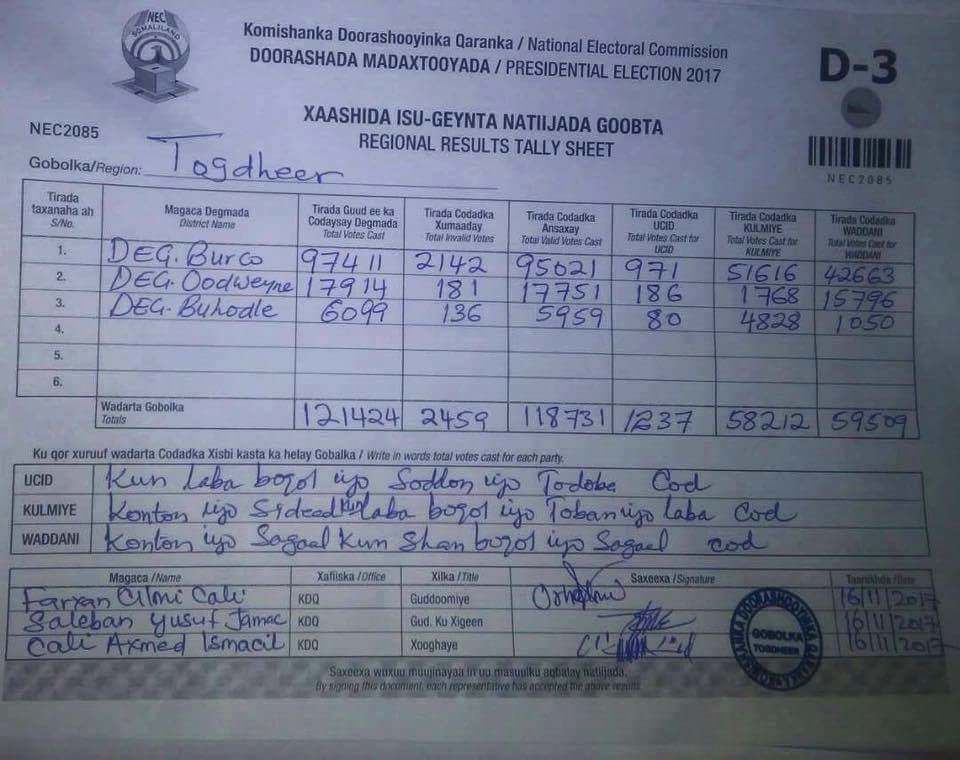 NEC
SOMALILAND
Komishanka Doorashooyinka Qaranka / National Electoral Commission
DOORASHADA MADAXTOOYADA / PRESIDENTIAL ELECTION 2017
D-3
XAASHIDA ISU-GEYNTA NATIIJADA GOOBTA
REGIONAL RESULTS TALLY SHEET
NEC2085
NEC2085
Gobolka/Region: Togdheer
Tirada taxanaha ah S/No. Magaca Degmada District Name Tirada Guud ee ka Codaysay Degmada Total Votes Cast Tirada Codadka Xumaaday Total Invalid Votes Tirada Codadka Ansaxay Total Valid Votes Cast Tirada Codadka UCID Total Votes Cast for UCID Tirada Codadka KULMIYE Total Votes Cast for KULMIYE Tirada Codadka WADDANI Total Votes Cast for WADDANI
1. DEG. Burco 97411 2142 95021 971 51616 42663
2. DEG. Oodweyne 17914 181 17751 186 1768 15796
3. DEG. Buhodle 6099 136 5959 80 4828 1050
4.
5.
6.
Wadarta Gobolka Totals 121424 2459 118731 1237 58212 59509
Ku qor xuruuf wadarta Codadka Xisbi kasta ka helay Gobalka / Write in words total votes cast for each party.
UCID Kun laba boqol iyo Soddon iyo Todoba Cod
KULMIYE Konton iyo Sideed kun laba boqol iyo Toban iyo laba Cod
WADDANI Konton iyo Sagaal Kun Shan boqol iyo Sagaal cod
Magaca /Name Xafiiska /Office Xilka /Title Saxeexa /Signature Taariikhda /Date
Farxan Cilmi Cali KDQ Guddoomiye 16/11/2017
Saleban Yusuf Jamac KDQ Gud. Ku Xigeen 16/11/2017
Cali Axmed Ismacil KDQ Xooghaye 16/11/2017
GOBOLKA
TOGDHEER
Saxeexa wuxuu muujinayaa in uu masuulku aqbalay natiijada.
By signing this document, each representative has accepted the above results.